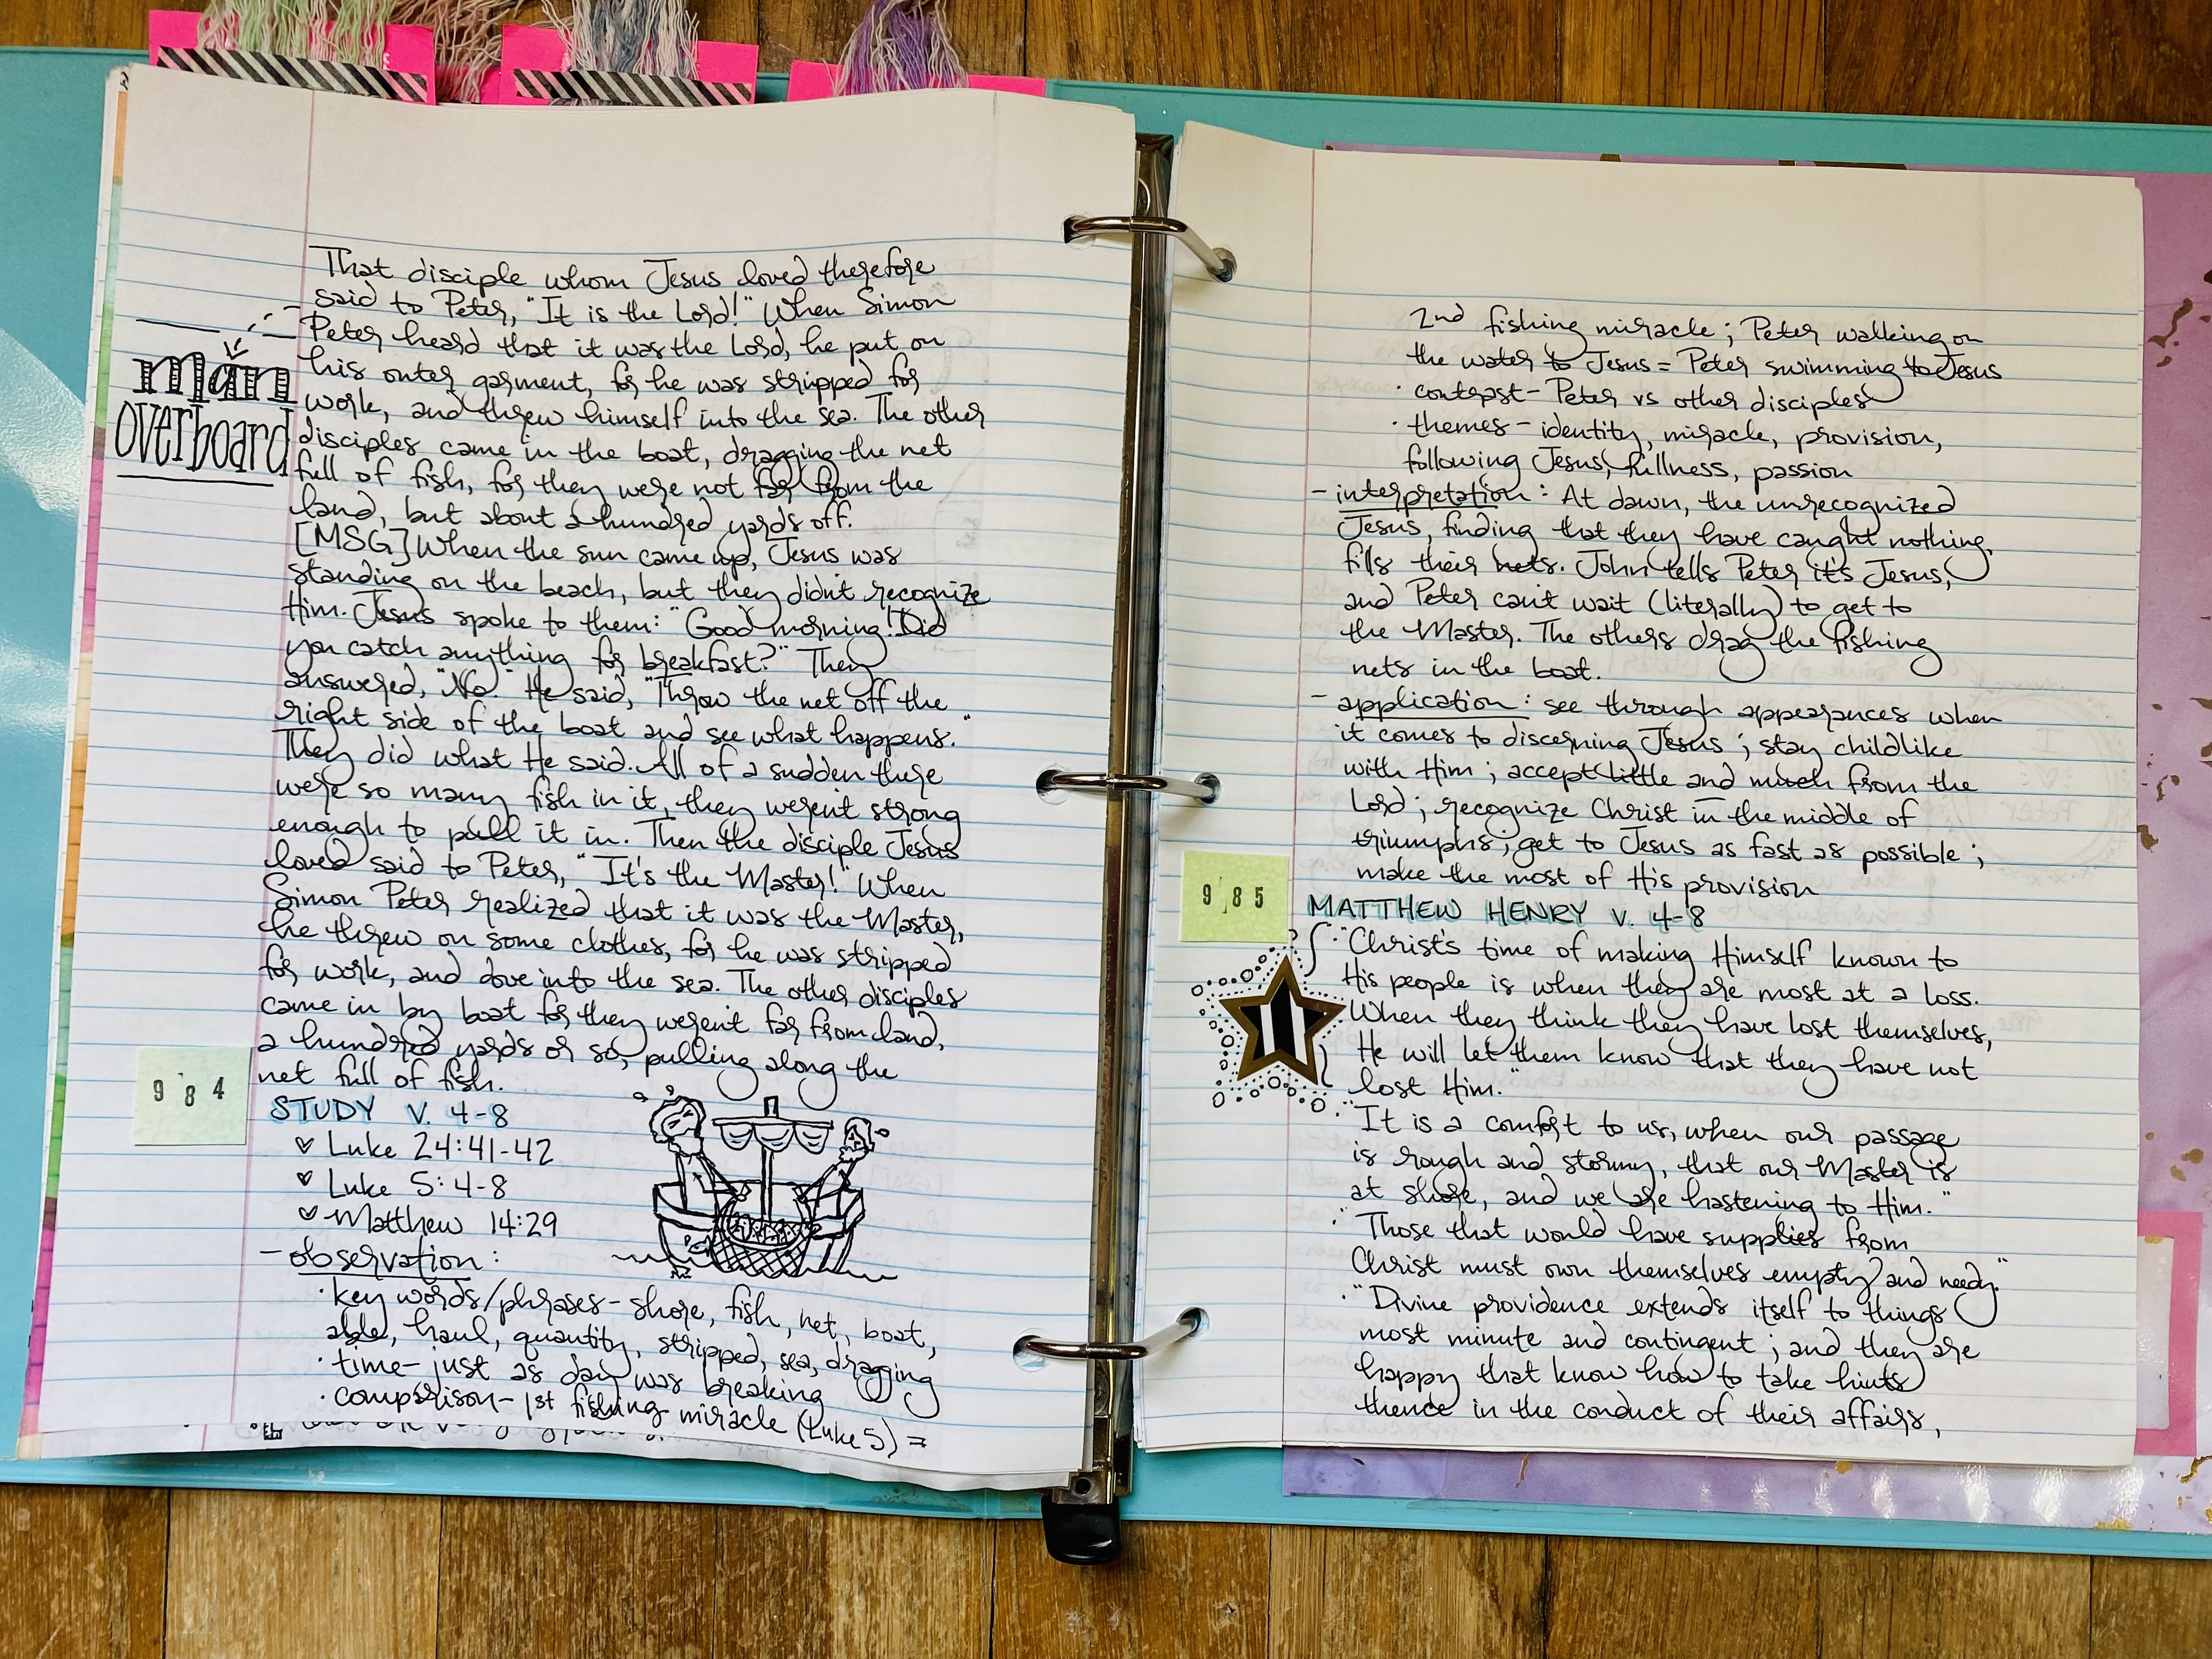 man
overboard
That disciple whom Jesus loved therefore
said to Peter, "It is the Lord!" When Simon
Peter heard that it was the Lord, he put on
his outer garment, for he was stripped for
work, and threw himself into the sea. The other
disciples came in the boat, dragging the net
full of fish, for they were not far from the
land, but about a hundred yards off.
[MSG] When the sun came up, Jesus was
standing on the beach, but they didn't recognize
Him. Jesus spoke to them: "Good morning! Did
you catch anything for breakfast?" They
answered, "No." He said, "Throw the net off the
right side of the boat and see what happens."
They did what He said. All of a sudden there
were so many fish in it, they weren't strong
enough to pull it in. Then the disciple Jesus
loved said to Peter, "It's the Master!" When
Simon Peter realized that it was the Master,
he threw on some clothes, for he was stripped
for work, and dove into the sea. The other disciples
came in by boat for they weren't far from land,
a hundred yards or so, pulling along the
net full of fish.
984
STUDY V. 4-8
♡ Luke 24:41-42
♡ Luke 5:4-8
♡ Matthew 14:29
- observation:
· key words/phrases - shore, fish, net, boat,
able, haul, quantity, stripped, sea, dragging
· time - just as day was breaking
· comparison - 1st fishing miracle (Luke 5) =
2nd fishing miracle; Peter walking on
the water to Jesus = Peter swimming to Jesus
· contrast - Peter vs other disciples
· themes - identity, miracle, provision,
following Jesus, fullness, passion
- interpretation: At dawn, the unrecognized
Jesus, finding that they have caught nothing,
fills their nets. John tells Peter it's Jesus,
and Peter can't wait (literally) to get to
the Master. The others drag the fishing
nets in the boat.
- application: see through appearances when
it comes to discerning Jesus; stay childlike
with Him; accept little and much from the
Lord; recognize Christ in the middle of
triumphs; get to Jesus as fast as possible;
make the most of His provision
985
MATTHEW HENRY V. 4-8
· "Christ's time of making Himself known to
His people is when they are most at a loss.
When they think they have lost themselves,
He will let them know that they have not
lost Him."
· "It is a comfort to us, when our passage
is rough and stormy, that our Master is
at shore, and we are hastening to Him."
· "Those that would have supplies from
Christ must own themselves empty and needy."
· "Divine providence extends itself to things
most minute and contingent; and they are
happy that know how to take hints
thence in the conduct of their affairs,